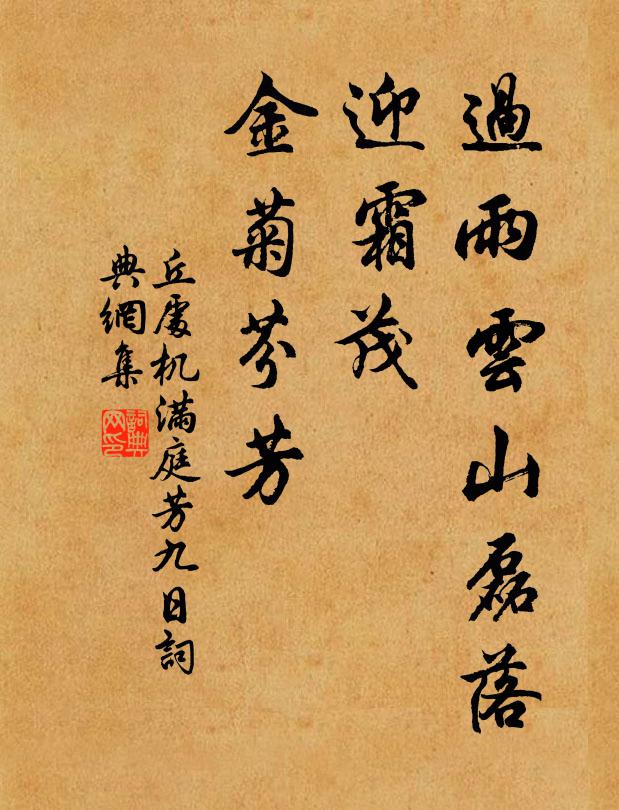 過雨雲山磊落
迎霜茂
金菊芬芳
丘處机滿庭芳九日詞
典網集
詞典网印